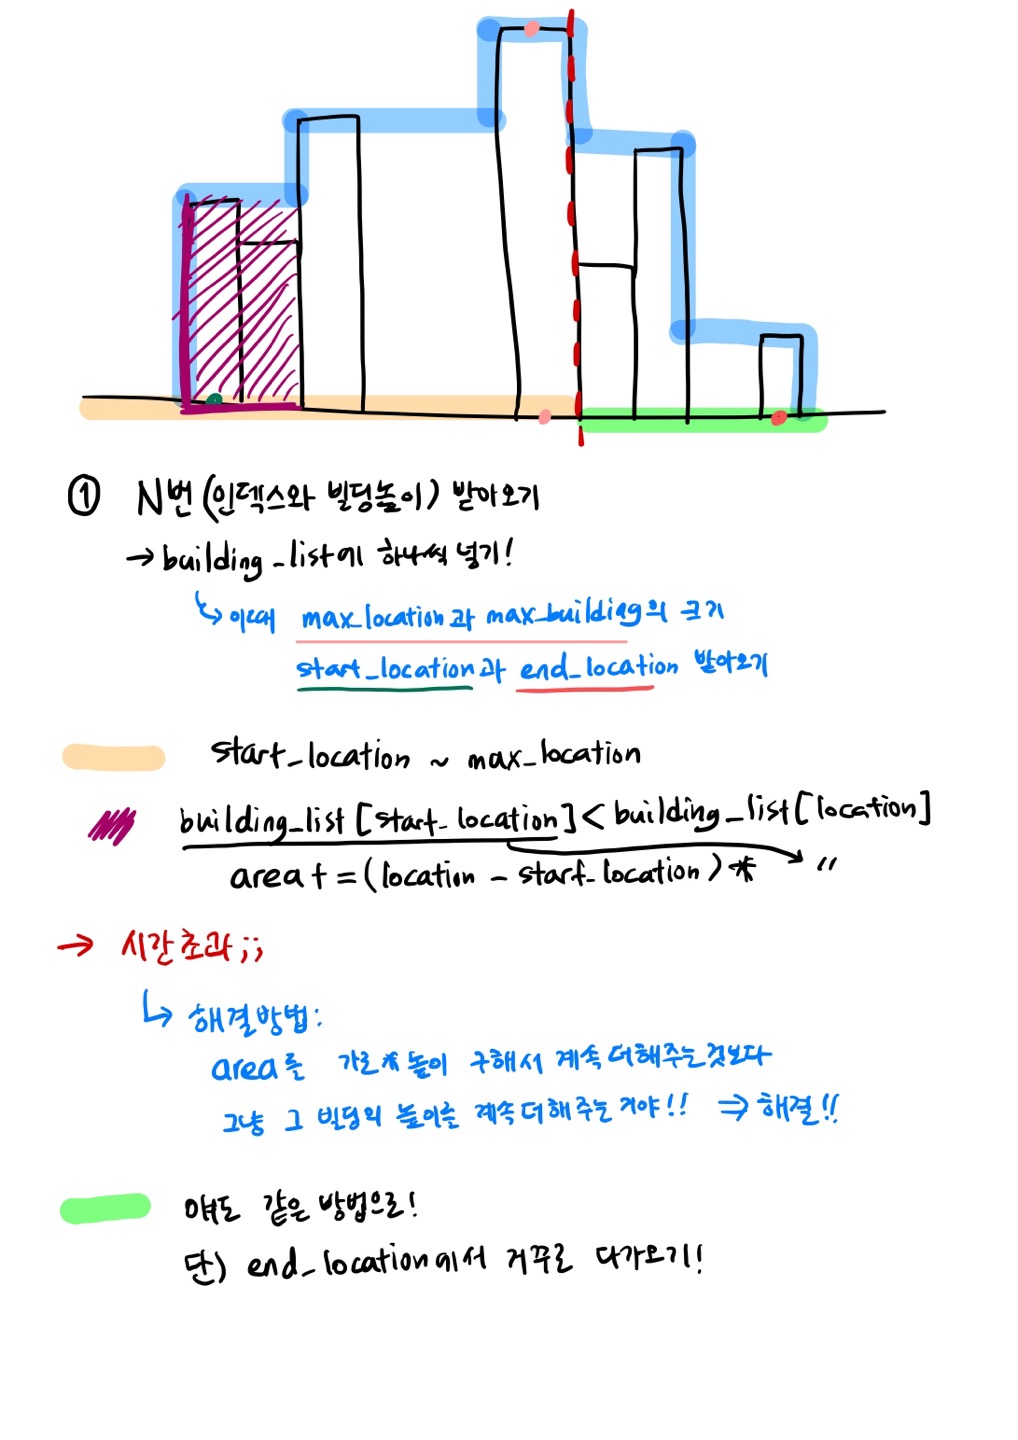 ① N번 (인덱스와 빌딩높이) 받아오기
→ building_list에 하나씩 넣기!
↳ 이때 max_location과 max_building의 크기
start_location과 end_location 받아오기
start_location ~ max_location
building_list[start_location] < building_list[location]
area += (location - start_location) * 〃
→ 시간초과;;
↳ 해결방법:
area를 가로*높이 구해서 계속 더해주는것보다
그냥 그 빌딩의 높이를 계속 더해주는거야!! ⇒ 해결!!
얘도 같은 방법으로!
단) end_location에서 거꾸로 다가오기!